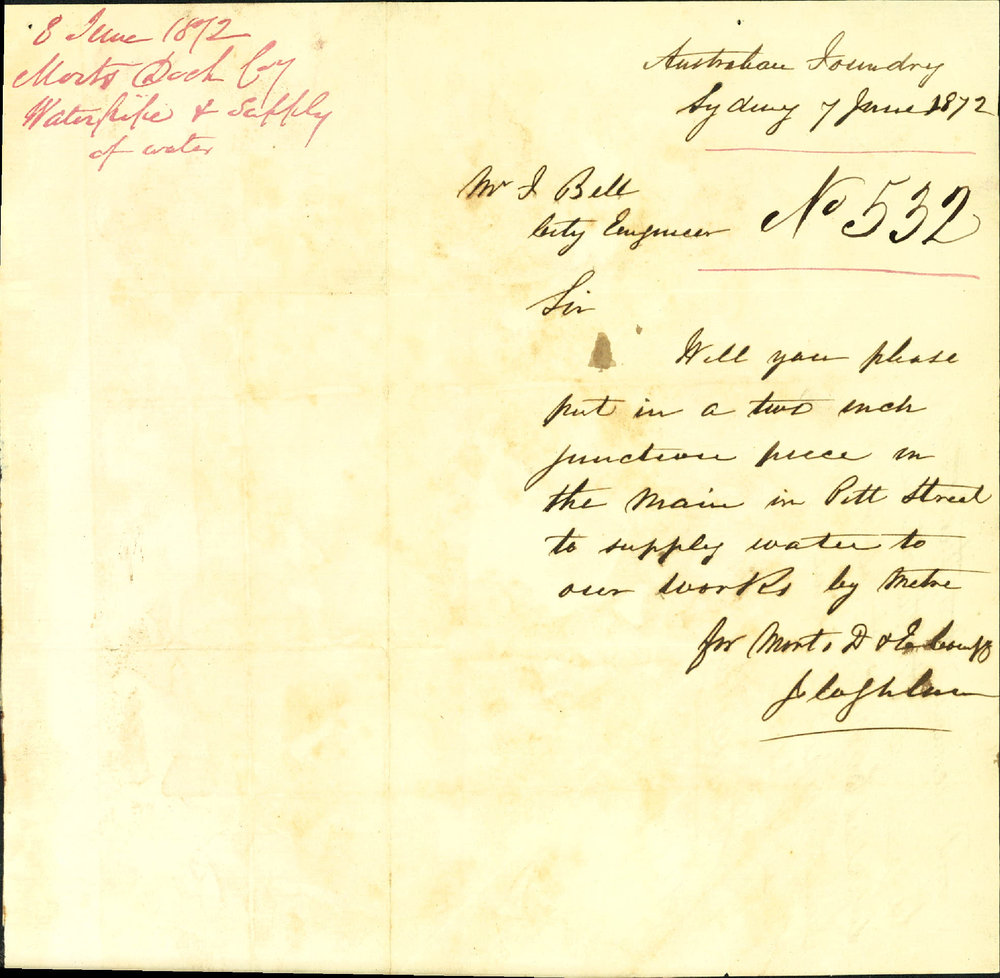 8 June 1872
Morts Dock Coy
Waterpipe & Supply
of water
Australian Foundry
Sydney 7 June 1872
Mr J Bell
City Engineer
No 532
Sir
Will you please
put in a two inch
junction piece in
the Main in Pitt Street
to supply water to
our works by Metre
for Morts D & E Compy